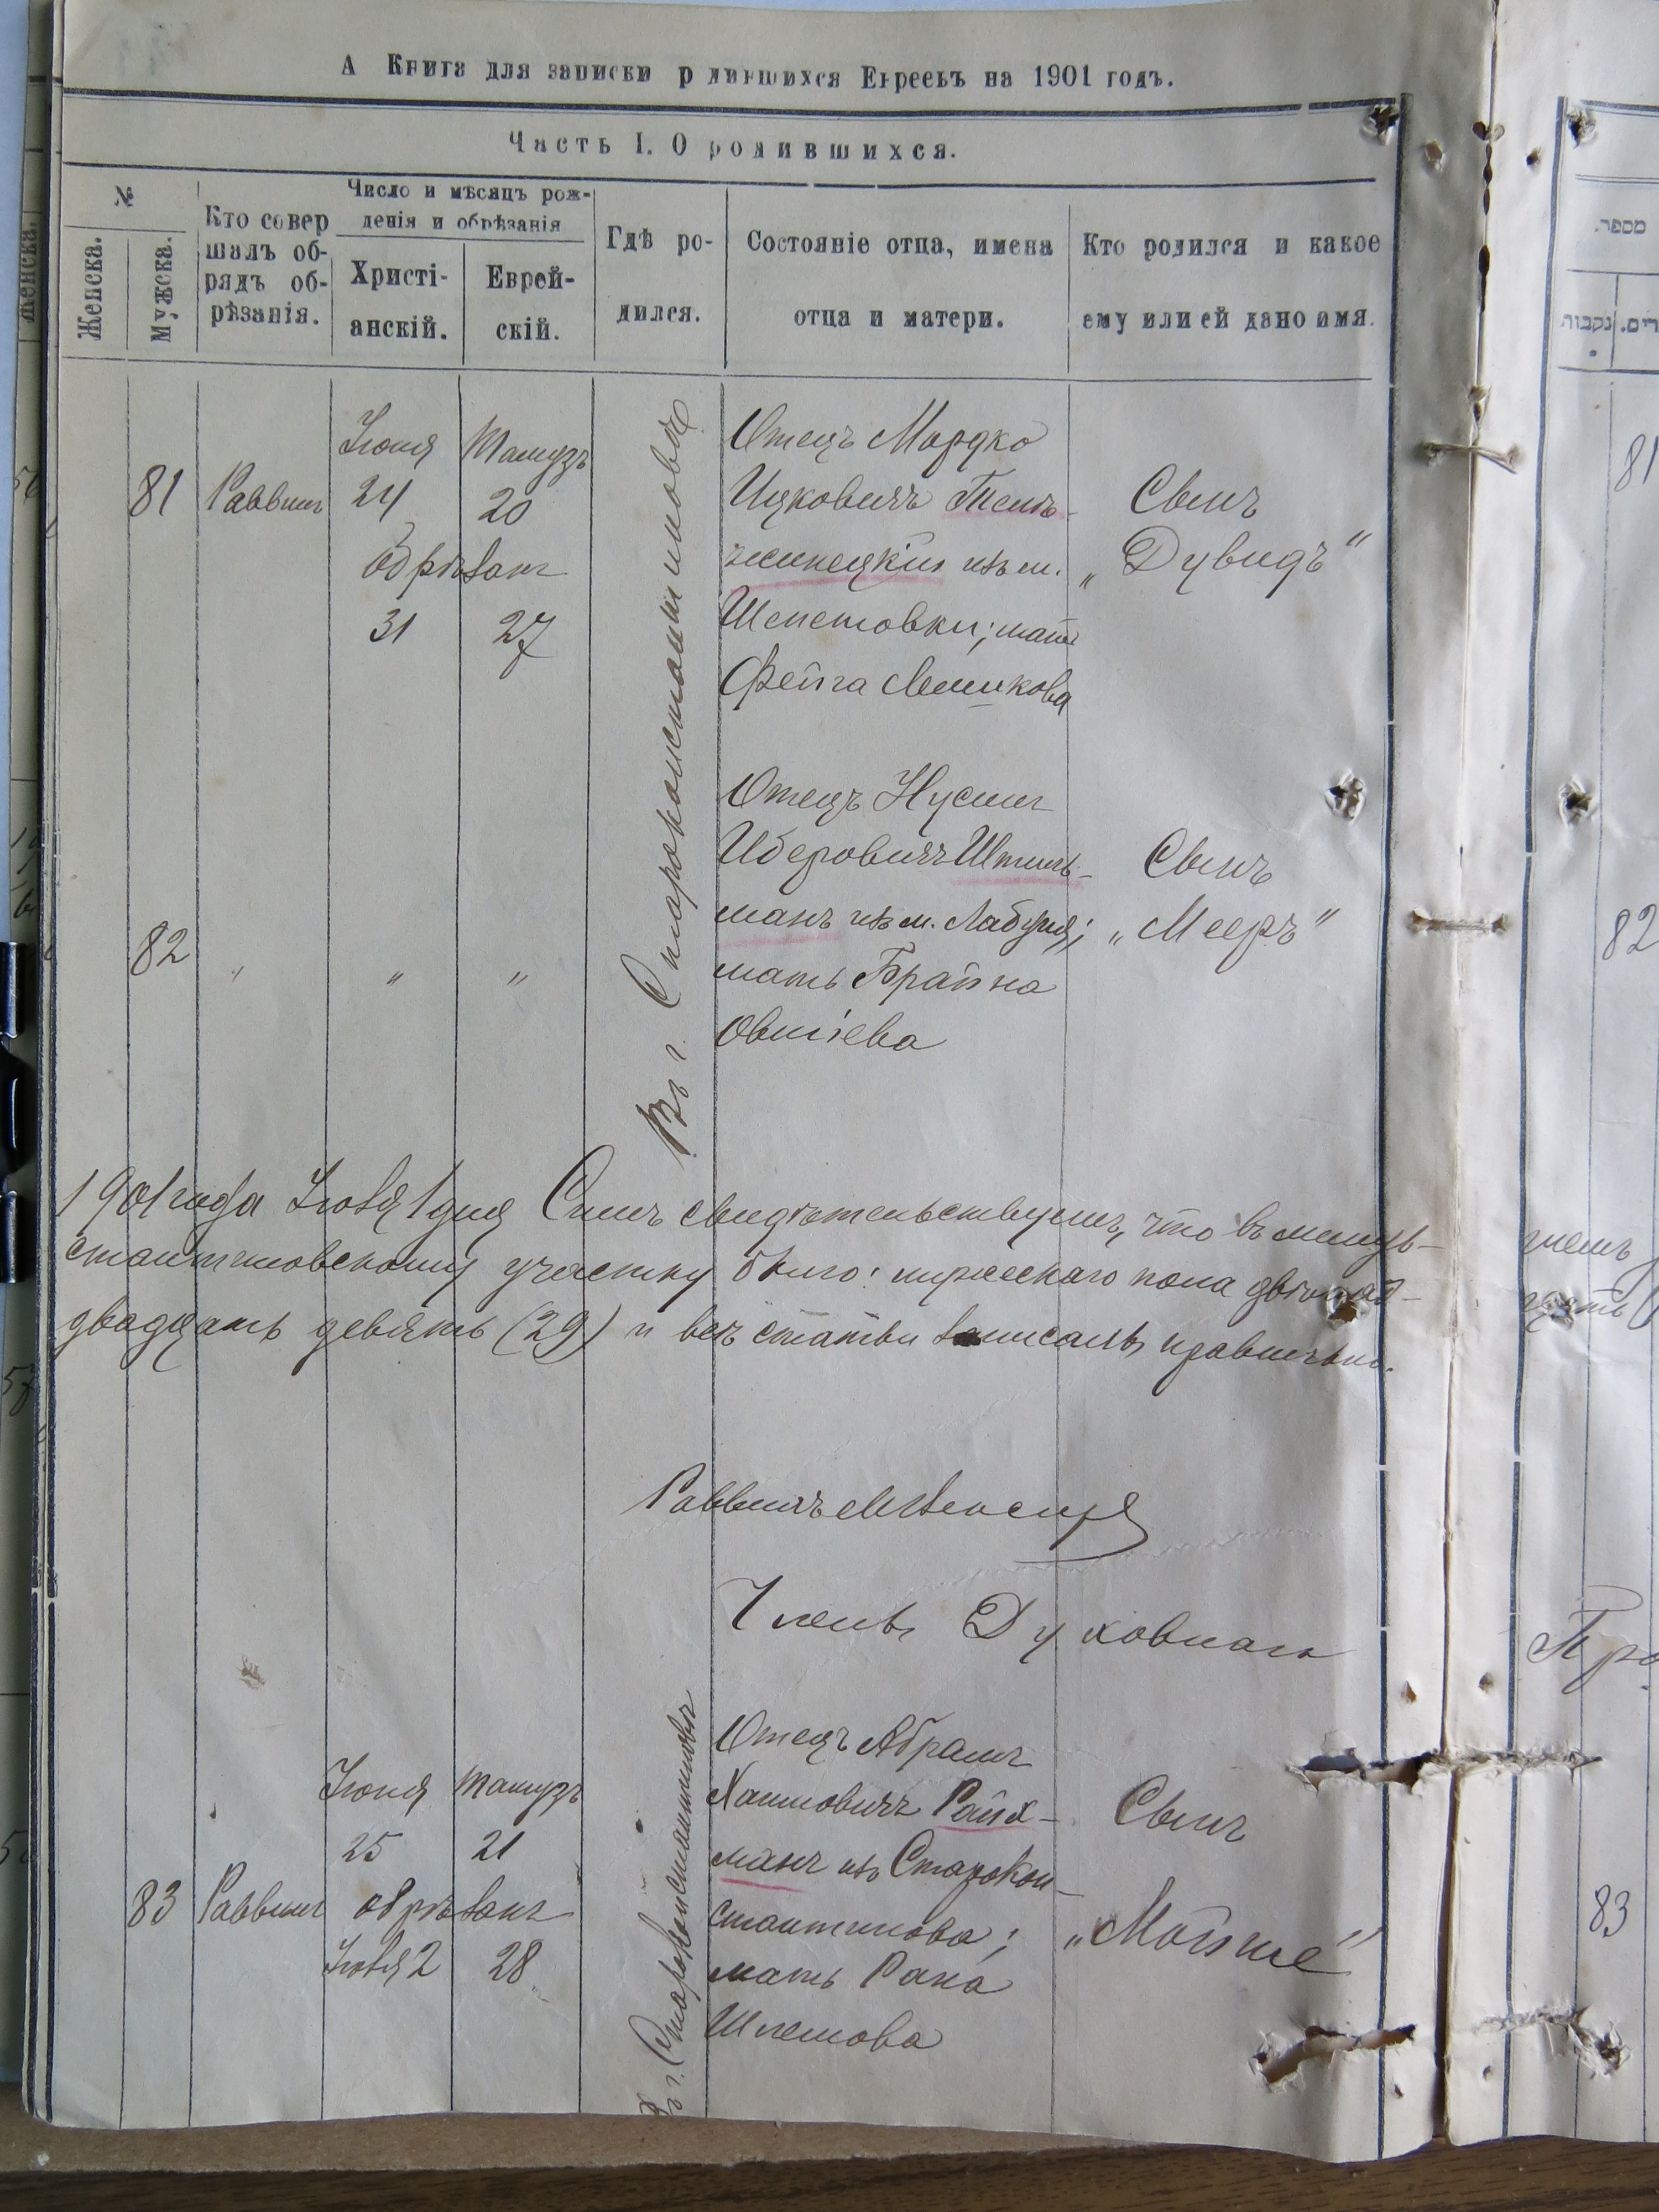 А Книга для записки родившихся Евреевъ на 1901 годъ.
Часть I. О родившихся.
№
Женска.
Мужска.
Кто совер
шалъ об-
рядъ об-
рѣзанія.
Число и мѣсяцъ рож-
денія и обрѣзанія
Христі-
анскій.
Еврей-
скій.
Гдѣ ро-
дился.
Состояніе отца, имена
отца и матери.
Кто родился и какое
ему или ей дано имя.
81
Раввинъ
Іюня
24
обрѣзанъ
31
Тамузъ
20
27
Въ г. Староконстантиновѣ
Отецъ Мордко
Ицковичъ
изъ м.
Шепетовки; мать
Фейга
Сынъ
„Дувидъ“
82
„
„
„
Отецъ Нусинъ
Иберовичъ Штиль-
манъ изъ м. Лабуня;
мать Брайна
Овшіева
Сынъ
„Мееръ“
1901 года Іюля 1 дня Симъ свидѣтельствуемъ, что въ
стантиновскому участку было: мужескаго пола
двадцать девять (29) и всѣ статьи записаны правильно.
Раввинъ
Члены Духовнаго
83
Раввинъ
Іюня
25
обрѣзанъ
Іюля 2
Тамузъ
21
28
Въ г. Староконстантиновѣ
Отецъ Абрамъ
Хаимовичъ Райх-
манъ изъ Старокон-
стантинова;
мать Рана
Шлемова
Сынъ
„Мойше“
מספר.
נקבות
81
82
83